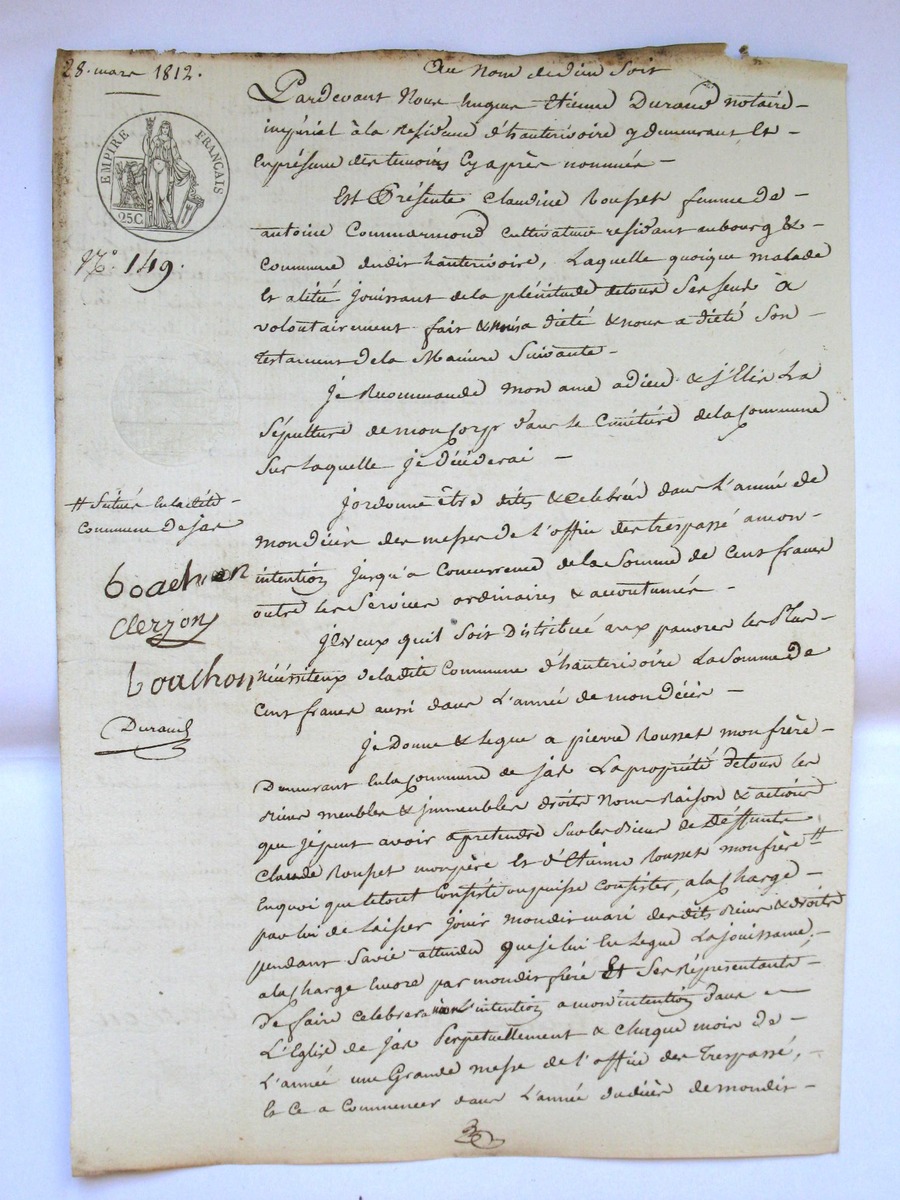 28. mars 1812.
Au Nom de dieu Soit
Pardevant Nous hugue Etienne Durand notaire
impérial à la Residence d'hauterivoire y demeurant Et
En présence des temoins Cy après nommés
Est Présente Claudine Rousset femme de
antoine Commarmond Cultivateur residant au bourg &
Commune dudit hauterivoire, Laquelle quoique malade
Et alitée jouissant de la plénitude de tous Ses Sens à
volontairement fait & nous a dicté Son
testament de la Maniere Suivante
Je Recommande mon ame a dieu & j'Elis La
Sépulture de mon Corps dans le Cimétiere de la Commune
Sur laquelle je décéderai
J'ordonne être dites & Célébrés dans L'année de
mon décès des messes de L'office des trespassé a mon
intention jusqu'a Concurrence de la Somme de Cent francs
outre les Services ordinaires & accoutumés
Je veux qu'il Soit Distribué aux pauvres les Plus
nécéssiteux de la dite Commune d'hauterivoire La Somme de
Cent francs aussi dans L'année de mon décès
Je Donne & Legue a pierre Rousset mon frère
Demeurant En la Commune de Jas La propriété de tous les
Biens meubles & immeubles droits Noms Raison & actions
que je puis avoir a pretendre Sur les Biens de Deffunts
Claude Rousset mon père Et d'Etienne Rousset mon frère #
En quoi que le tout Consiste ou puisse Consister, a la Charge
par lui de Laisser Jouir mondit mari desdits Biens & droits
pendant Sa vie attendu que je lui En Legue La jouissance,
a la Charge Encore par mondit frère Et Ses Représentants
De faire Celebrer a mon intention dans
L'Eglise de Jas Perpetuellement & chaque mois de
L'année une Grande messe de L'office des Trespassé,
Et Ce a Commencer dans L'année du décès de mondit
EMPIRE FRANÇAIS
25C
N.° 149.
# Situés En la dite
Commune de Jas
Boachon
Clerjon
Boachon
Durand